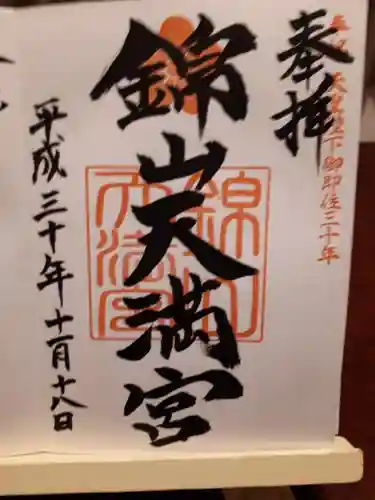 奉祝天皇陛下御即位三十年
奉拝
錦山天満宮
平成三十年十一月十八日